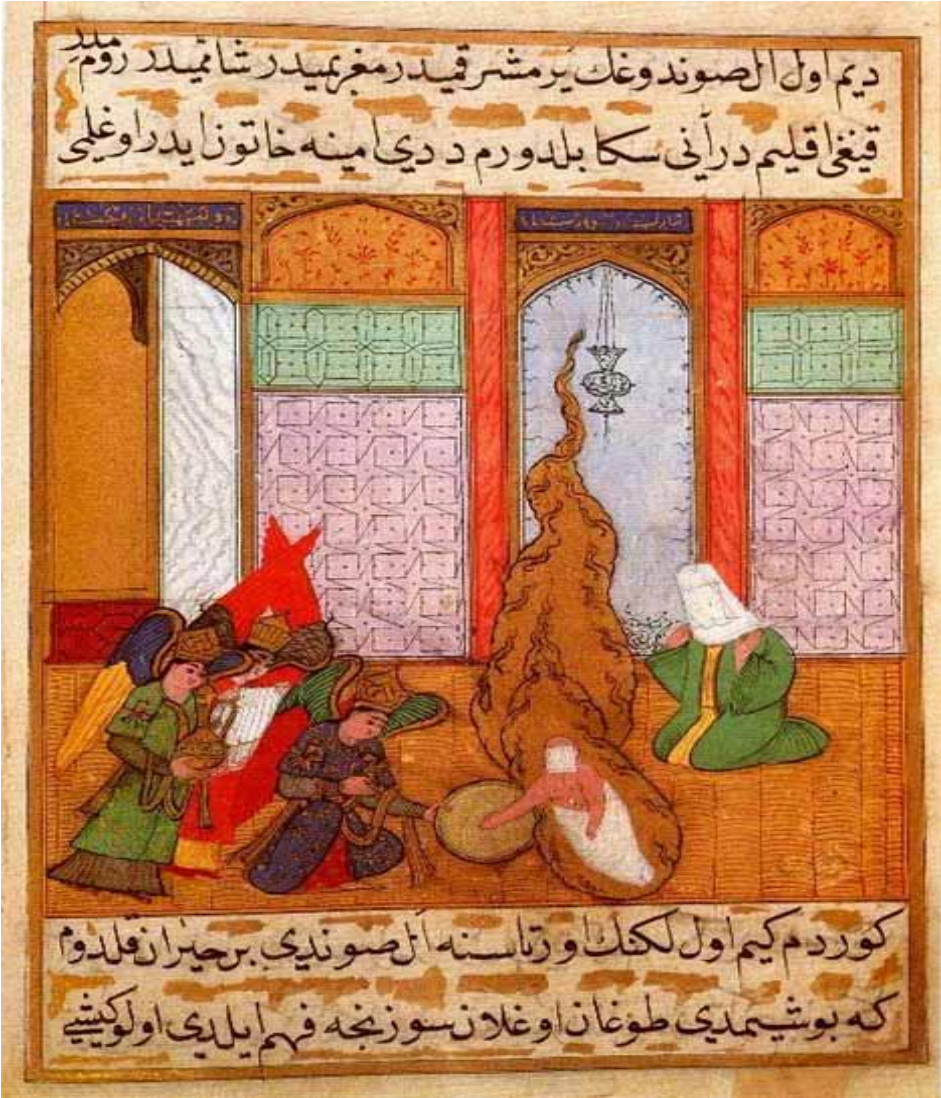 ديم اول ال صوندوغك ير مشرقميدر مغربميدر شامميدر روممدر
قنغى اقليم در آنى سكا بلدورم ددي امينه خاتون ايدر اوغلمى
كوردم كيم اول لكنك اورتاسنه ال صوندي بن حيران قلدوم
كه بو شيمدي طوغان اوغلان سوز نجه فهم ايلدي اول كيشي